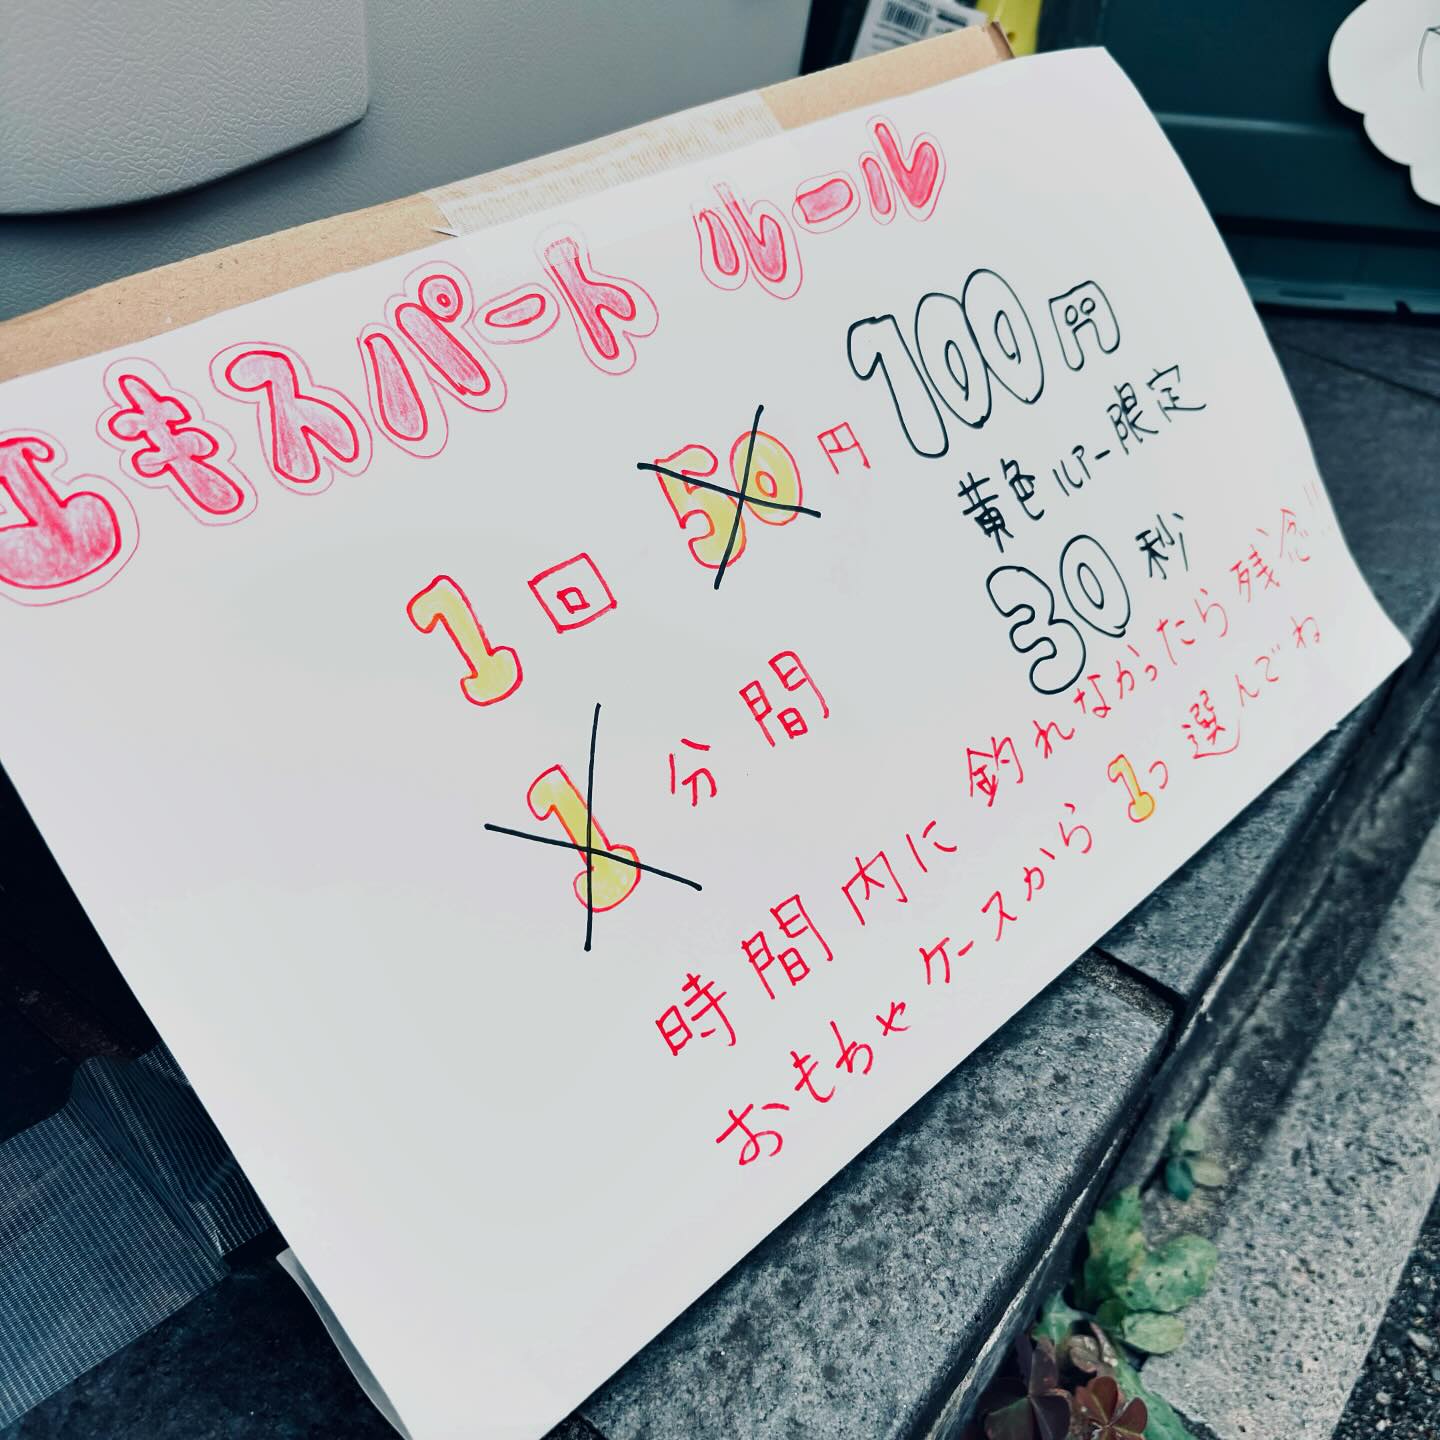 エキスパート ルール
1回 50円 100円
黄色ルアー限定
1分間 30秒
時間内に 釣れなかったら残念!!
おもちゃケースから 1つ選んでね